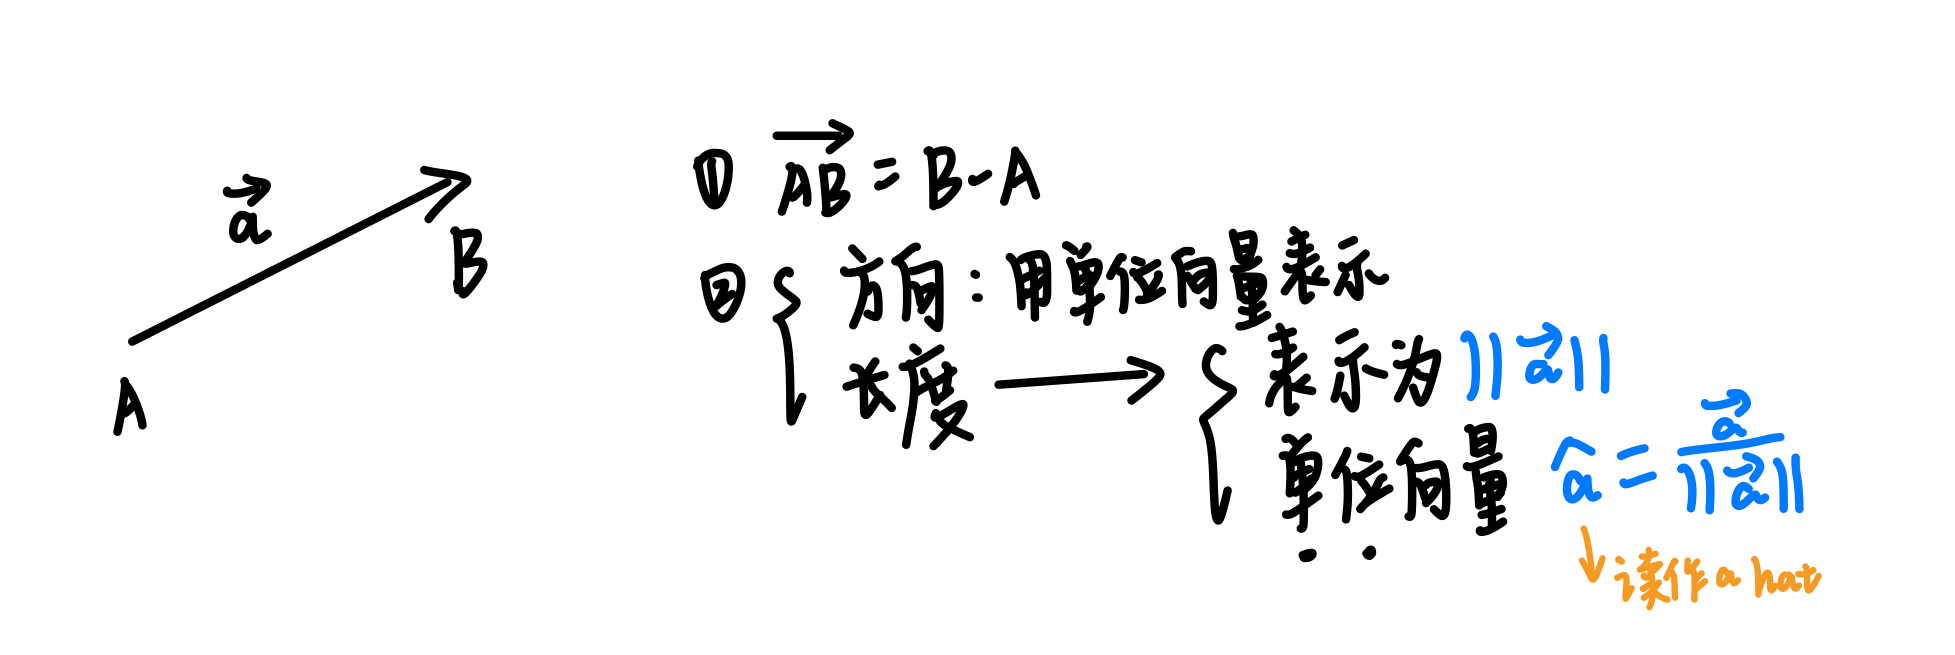 a⃗
A
B
① A⃗B⃗ = B - A
② { 方向：用单位向量表示
长度 → { 表示为 ||a⃗||
单位向量 â = a⃗ / ||a⃗||
↓ 读作 a hat